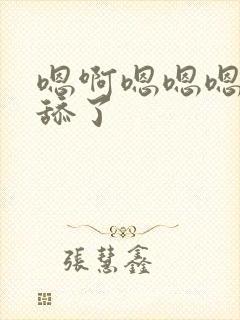 嗯啊嗯嗯嗯
舔了
張慧鑫